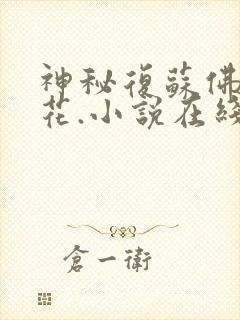 神秘復蘇佛
花.小說在綫
倉一衛